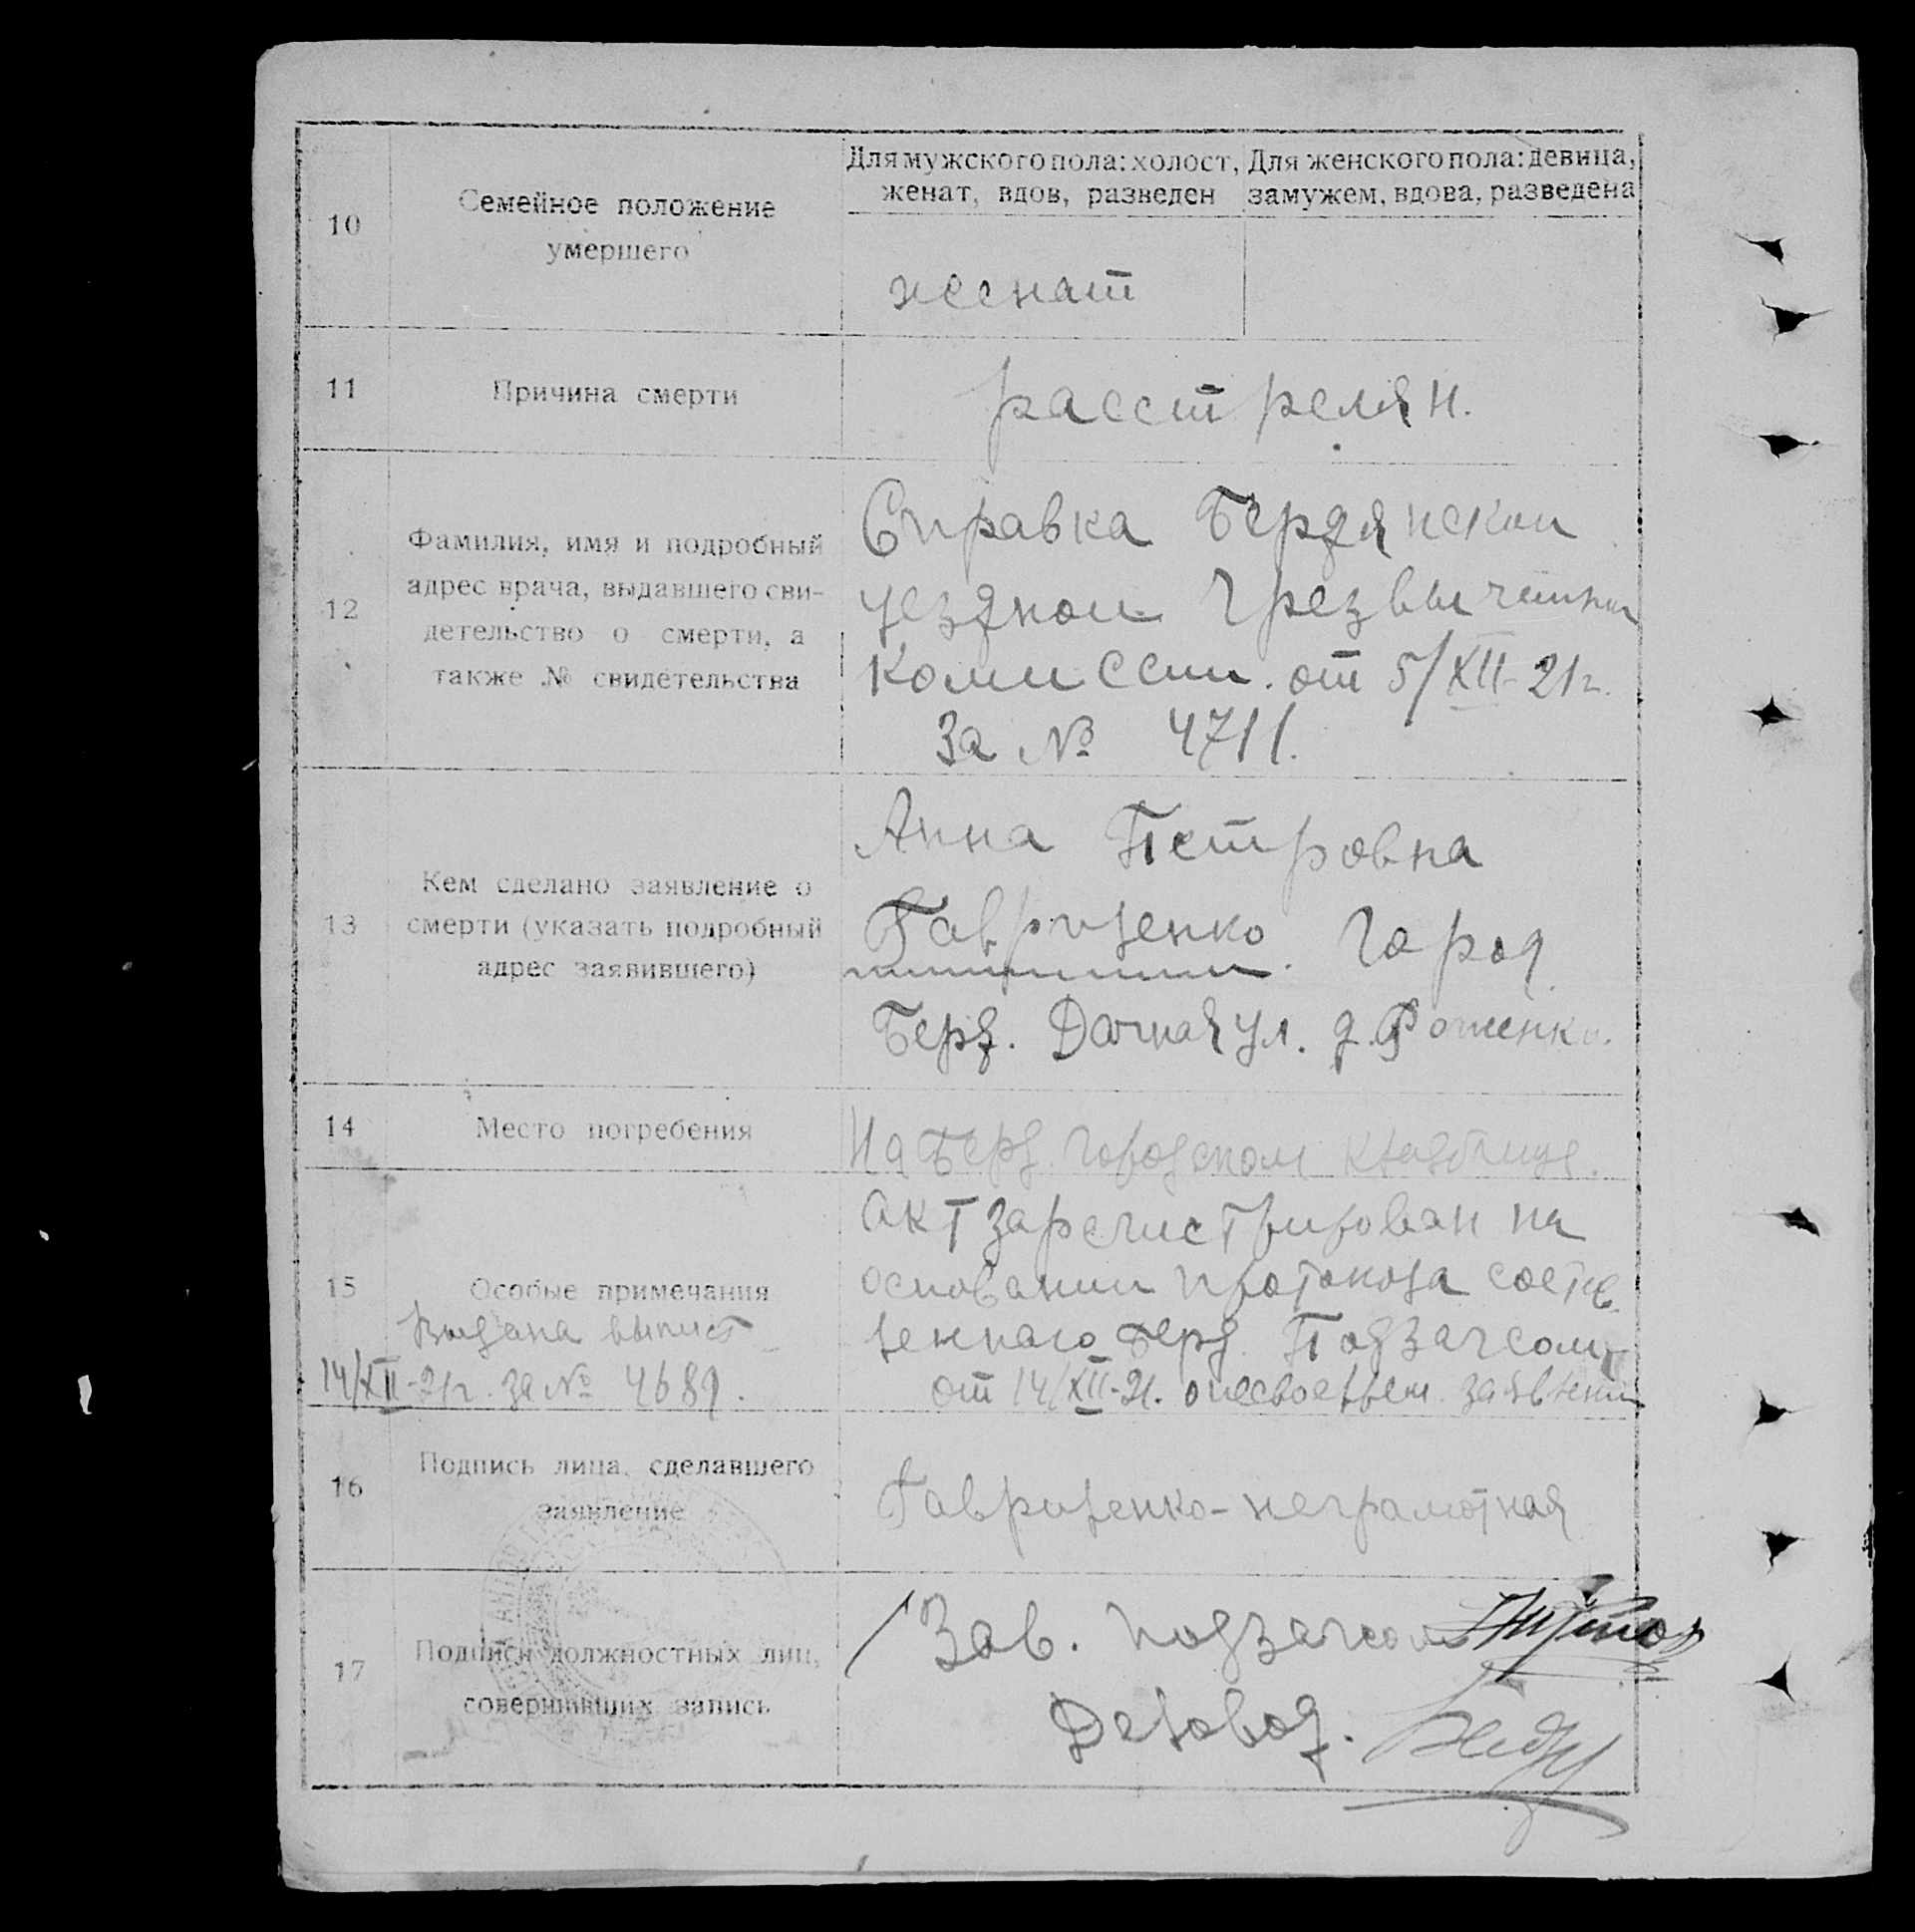 10
Семейное положение
умершего
Для мужского пола: холост,
женат, вдов, разведен
Для женского пола: девица,
замужем, вдова, разведена
женат
11
Причина смерти
расстрелян.
12
Фамилия, имя и подробный
адрес врача, выдавшего сви-
детельство о смерти, а
также № свидетельства
Справка Бердянской
уездной Чрезвычайной
Комиссии. от 5/XII-21г.
За № 4711.
13
Кем сделано заявление о
смерти (указать подробный
адрес заявившего)
Анна Петровна
Гавриленко. Город
Берд. Дачная ул. д.
14
Место погребения
На Берд. городском кладбище.
15
Особые примечания
Выдана выпись
14/XII-21г. за № 4689.
Акт зарегистрирован на
основании протокола состав
леннаго Берд. Подзагсом
от 14/XII-21. о несвоеврем. заявлении
16
Подпись лица, сделавшего
заявление
Гавриленко-неграмотная
17
Подписи должностных лиц,
совершивших запись
Зав. подзагсом
Деловод.